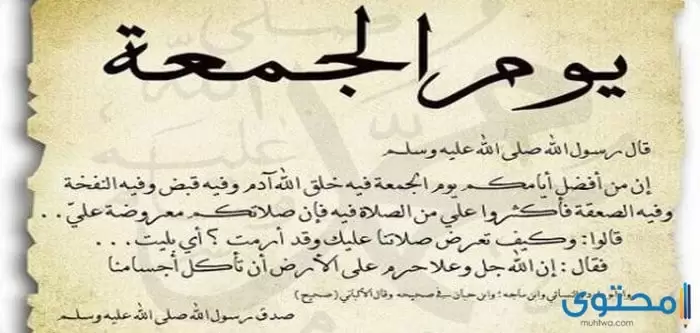 يوم الجمعة
قال رسول الله صلى الله عليه وسلم
إن من أفضل أيامكم يوم الجمعة فيه خلق الله آدم وفيه قبض وفيه النفخة
وفيه الصعقة فأكثروا علي من الصلاة فيه فإن صلاتكم معروضة عليّ . .
قالوا : وكيف تعرض صلاتنا عليك وقد أرمت ؟ أي بليت . . .
فقال : إن الله جل وعلا حرم على الأرض أن تأكل أجسامنا
والنسائي وابن ماجه ؛ وابن حبان في صحيحه وقال الألباني ( صحيح )
صدق رسول الله صلى الله عليه وسلم
محتوى
muhtwa.com